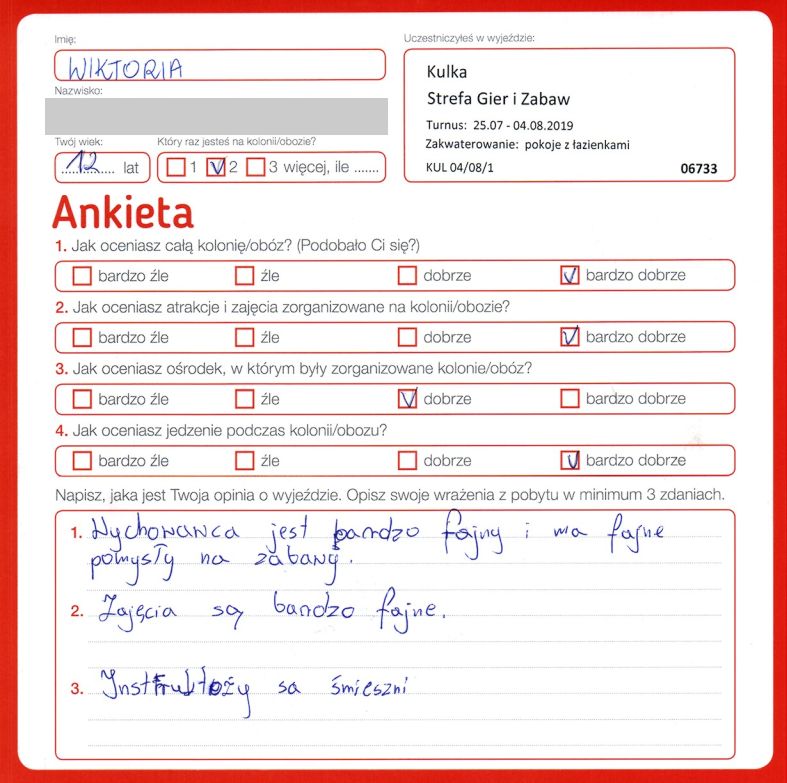 Imię:
WIKTORIA
Nazwisko:
Twój wiek:
12 lat
Który raz jesteś na kolonii/obozie?
1 2 3 więcej, ile .......
Uczestniczyłeś w wyjeździe:
Kulka
Strefa Gier i Zabaw
Turnus: 25.07 - 04.08.2019
Zakwaterowanie: pokoje z łazienkami
KUL 04/08/1 06733
Ankieta
1. Jak oceniasz całą kolonię/obóz? (Podobało Ci się?)
bardzo źle źle dobrze bardzo dobrze
2. Jak oceniasz atrakcje i zajęcia zorganizowane na kolonii/obozie?
bardzo źle źle dobrze bardzo dobrze
3. Jak oceniasz ośrodek, w którym były zorganizowane kolonie/obóz?
bardzo źle źle dobrze bardzo dobrze
4. Jak oceniasz jedzenie podczas kolonii/obozu?
bardzo źle źle dobrze bardzo dobrze
Napisz, jaka jest Twoja opinia o wyjeździe. Opisz swoje wrażenia z pobytu w minimum 3 zdaniach.
1. Wychowawca jest bardzo fajny i ma fajne
pomysły na zabawy.
2. Zajęcia są bardzo fajne.
3. Instruktoży sa śmieszni